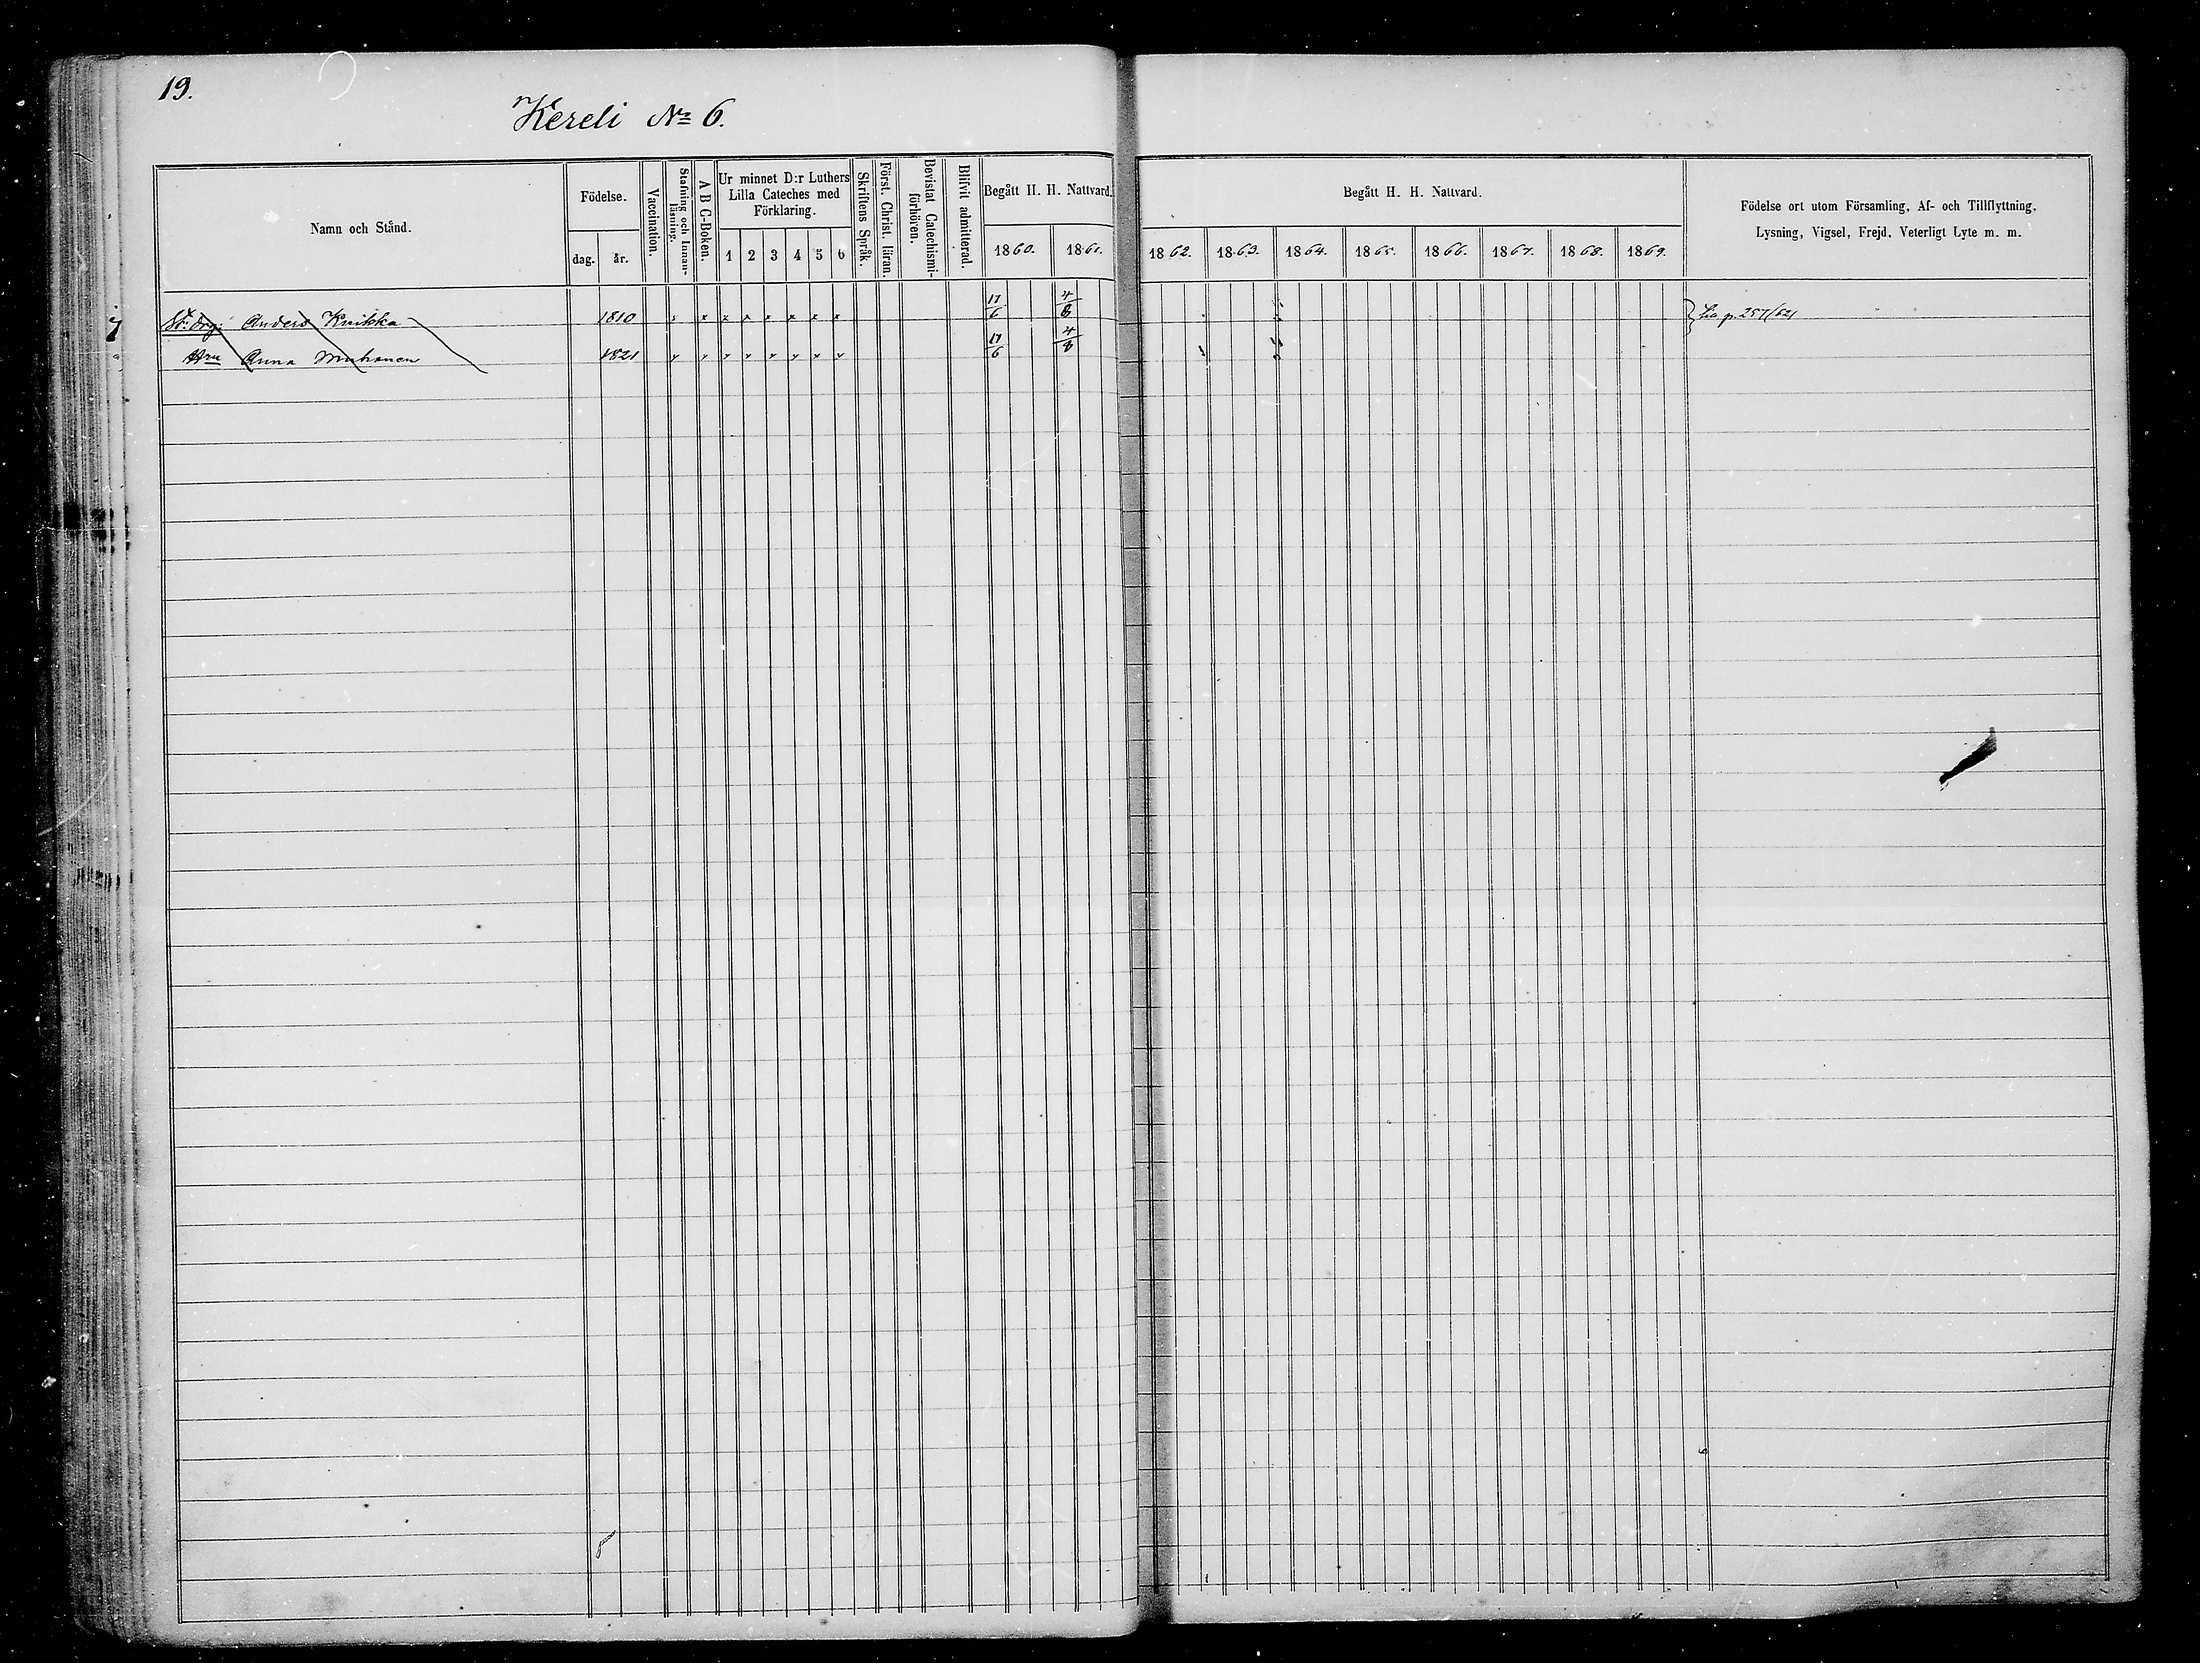 19.
Kereli No 6.
Namn och Stånd.
Födelse.
dag.
år.
Vaccination.
Stafning och Innan-
läsning.
A B C-Boken.
Ur minnet D:r Luthers
Lilla Cateches med
Förklaring.
1 2 3 4 5 6
Skriftens Språk.
Först. Christ. läran.
Bevistat Catechismi-
förhören.
Blifvit admitterad.
Begått H. H. Nattvard.
1860. 1861.
Begått H. H. Nattvard.
1862. 1863. 1864. 1865. 1866. 1867. 1868. 1869.
Födelse ort utom Församling, Af- och Tillflyttning,
Lysning, Vigsel, Frejd, Veterligt Lyte m. m.
7
Anders 1810 x x x x x x x 17/6 4/8 p. 257/621
Hru Anna 1821 17/6 4/8